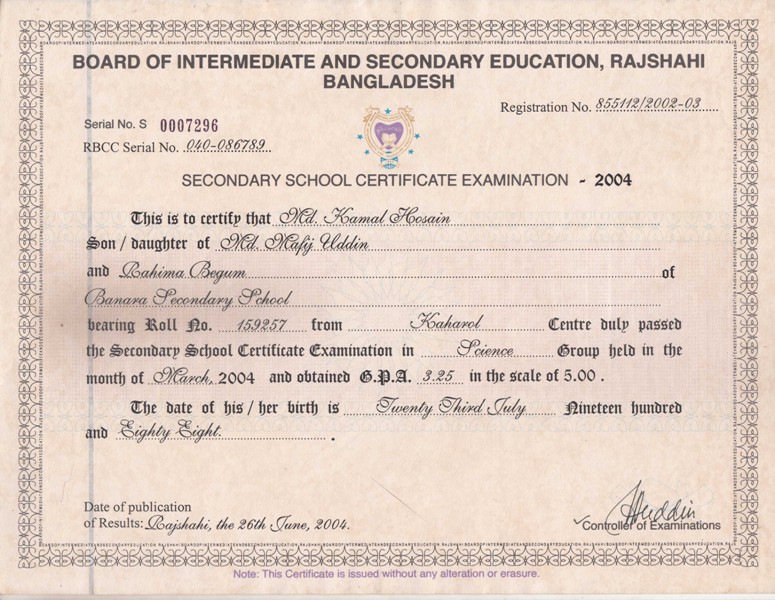 BOARD OF INTERMEDIATE AND SECONDARY EDUCATION, RAJSHAHI
BANGLADESH
Registration No. 855112/2002-03
Serial No. S 0007296
RBCC Serial No. 040-086789
SECONDARY SCHOOL CERTIFICATE EXAMINATION - 2004
This is to certify that Md. Kamal Hosain
Son / daughter of Md. Mafij Uddin
and Rahima Begum of
Banara Secondary School
bearing Roll No. 159257 from Kaharol Centre duly passed
the Secondary School Certificate Examination in Science Group held in the
month of March, 2004 and obtained G.P.A. 3.25 in the scale of 5.00 .
The date of his / her birth is Twenty Third July Nineteen hundred
and Eighty Eight. .
Date of publication
of Results: Rajshahi, the 26th June, 2004.
Controller of Examinations
Note: This Certificate is issued without any alteration or erasure.